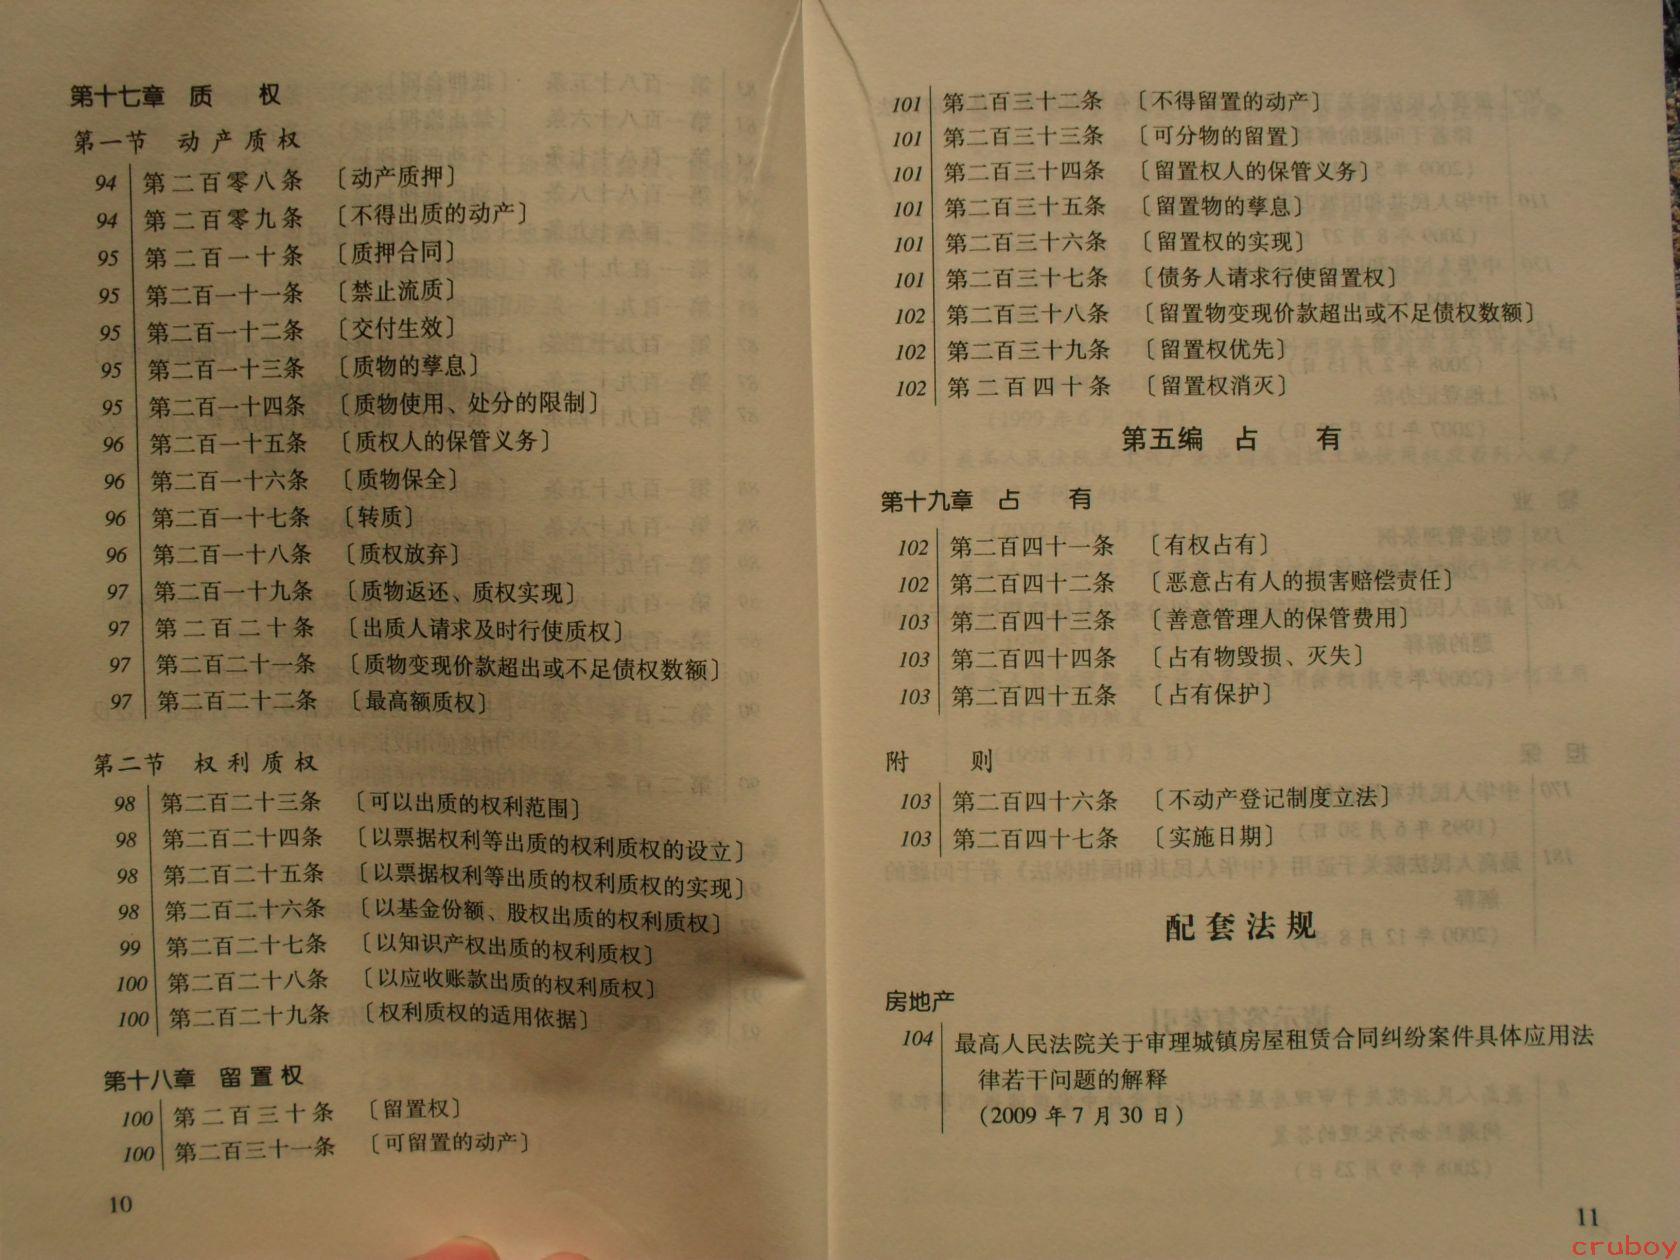 第十七章 质 权
第一节 动产质权
94 第二百零八条 〔动产质押〕
94 第二百零九条 〔不得出质的动产〕
95 第二百一十条 〔质押合同〕
95 第二百一十一条 〔禁止流质〕
95 第二百一十二条 〔交付生效〕
95 第二百一十三条 〔质物的孳息〕
95 第二百一十四条 〔质物使用、处分的限制〕
96 第二百一十五条 〔质权人的保管义务〕
96 第二百一十六条 〔质物保全〕
96 第二百一十七条 〔转质〕
96 第二百一十八条 〔质权放弃〕
97 第二百一十九条 〔质物返还、质权实现〕
97 第二百二十条 〔出质人请求及时行使质权〕
97 第二百二十一条 〔质物变现价款超出或不足债权数额〕
97 第二百二十二条 〔最高额质权〕
第二节 权利质权
98 第二百二十三条 〔可以出质的权利范围〕
98 第二百二十四条 〔以票据权利等出质的权利质权的设立〕
98 第二百二十五条 〔以票据权利等出质的权利质权的实现〕
98 第二百二十六条 〔以基金份额、股权出质的权利质权〕
99 第二百二十七条 〔以知识产权出质的权利质权〕
100 第二百二十八条 〔以应收账款出质的权利质权〕
100 第二百二十九条 〔权利质权的适用依据〕
第十八章 留置权
100 第二百三十条 〔留置权〕
100 第二百三十一条 〔可留置的动产〕
10
101 第二百三十二条 〔不得留置的动产〕
101 第二百三十三条 〔可分物的留置〕
101 第二百三十四条 〔留置权人的保管义务〕
101 第二百三十五条 〔留置物的孳息〕
101 第二百三十六条 〔留置权的实现〕
101 第二百三十七条 〔债务人请求行使留置权〕
102 第二百三十八条 〔留置物变现价款超出或不足债权数额〕
102 第二百三十九条 〔留置权优先〕
102 第二百四十条 〔留置权消灭〕
第五编 占 有
第十九章 占 有
102 第二百四十一条 〔有权占有〕
102 第二百四十二条 〔恶意占有人的损害赔偿责任〕
103 第二百四十三条 〔善意管理人的保管费用〕
103 第二百四十四条 〔占有物毁损、灭失〕
103 第二百四十五条 〔占有保护〕
附 则
103 第二百四十六条 〔不动产登记制度立法〕
103 第二百四十七条 〔实施日期〕
配套法规
房地产
104 最高人民法院关于审理城镇房屋租赁合同纠纷案件具体应用法
律若干问题的解释
(2009 年 7 月 30 日)
11
cruboy